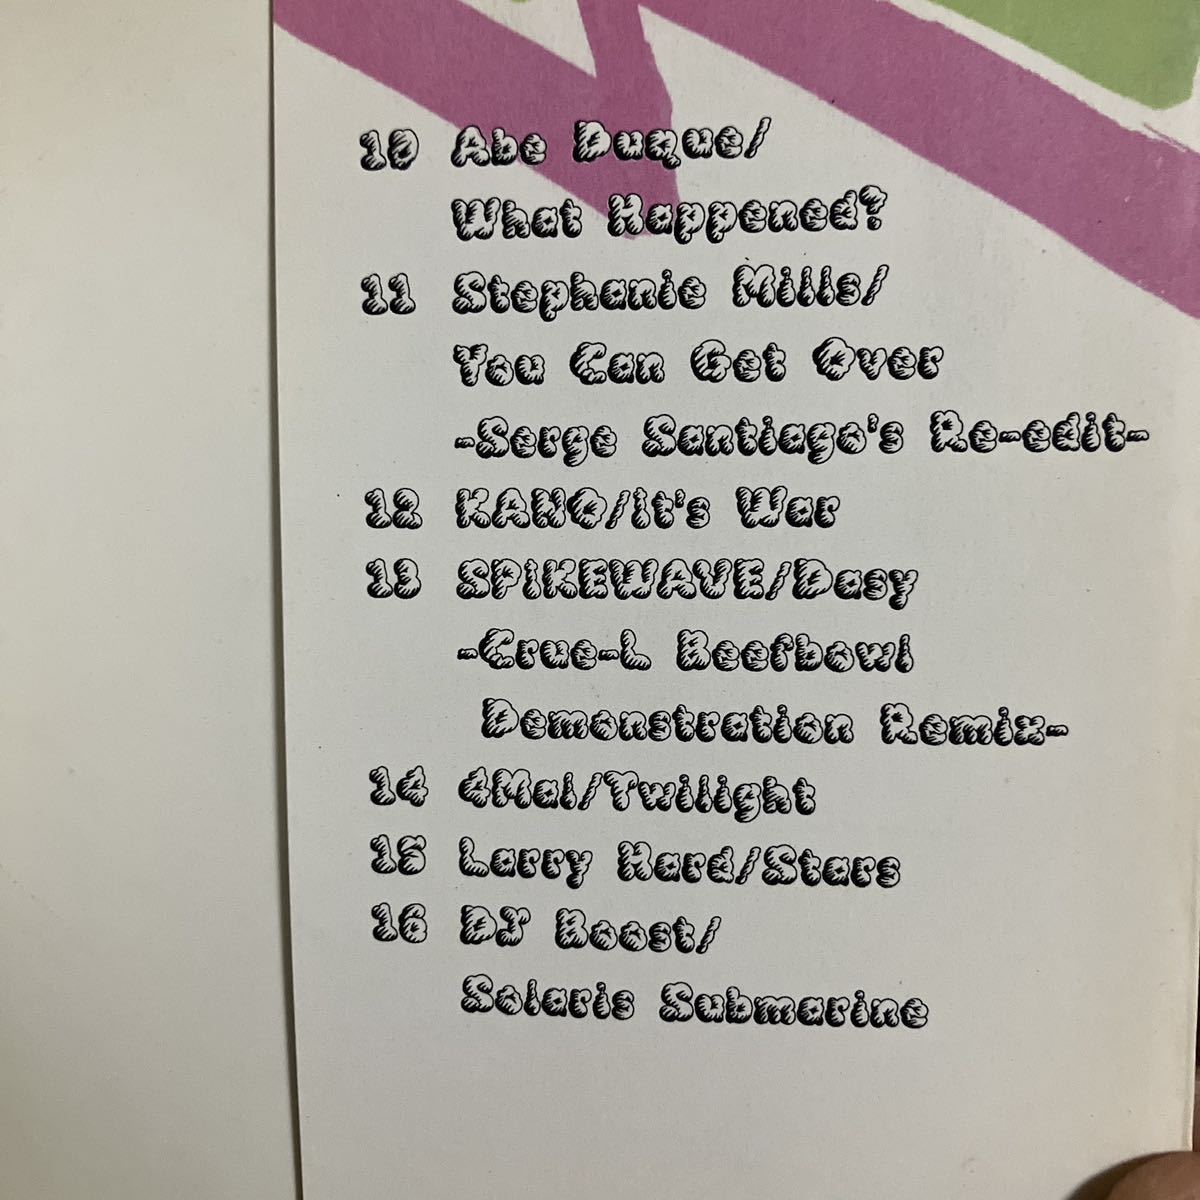 10 Abe Duque/
What Happened?
11 Stephanie Mills/
You Can Get Over
-Serge Santiago's Re-edit-
12 KANO/it's War
13 SPIKEWAVE/Dasy
-Crue-L Beefbowl
Demonstration Remix-
14 4Mal/Twilight
15 Larry Hard/Stars
16 DJ Roost/
Solaris Submarine